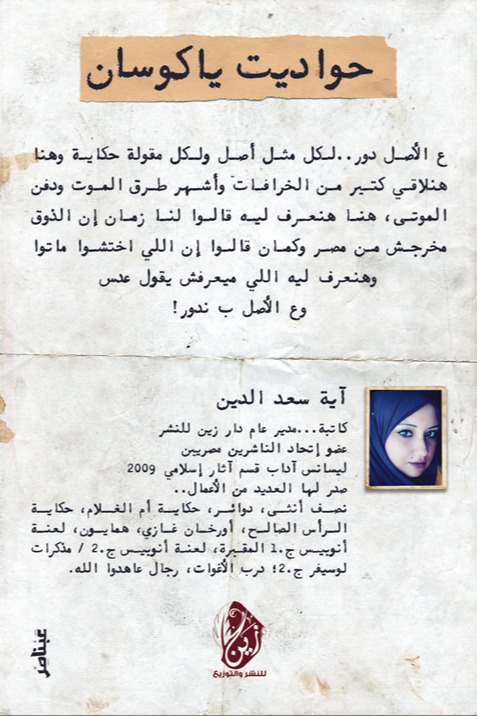 حواديت ياكوسان
ع الأصل دور..لكل مثل أصل ولكل مقولة حكاية وهنا
هنلاقي كتير من الخرافات وأشهر طرق الموت ودفن
الموتى، هنا هنعرف ليه قالوا لنا زمان إن الذوق
مخرجش من مصر وكمان قالوا إن اللي اختشوا ماتوا
وهنعرف ليه اللي ميعرفش يقول عدس
وع الأصل ب ندور!
آية سعد الدين
كاتبة...مدير عام دار زين للنشر
عضو إتحاد الناشرين مصريين
ليسانس آداب قسم آثار إسلامي 2009
صدر لها العديد من الأعمال..
نصف أنثى، دوائر، حكاية أم الغلام، حكاية
الرأس الصالح، أورخان غازي، همايون، لعنة
أنوبيس ج.1 المقبرة، لعنة أنوبيس ج.2 / مذكرات
لوسيفر ج.2؛ درب الأغوات، رجال عاهدوا الله.
زين
للنشر والتوزيع